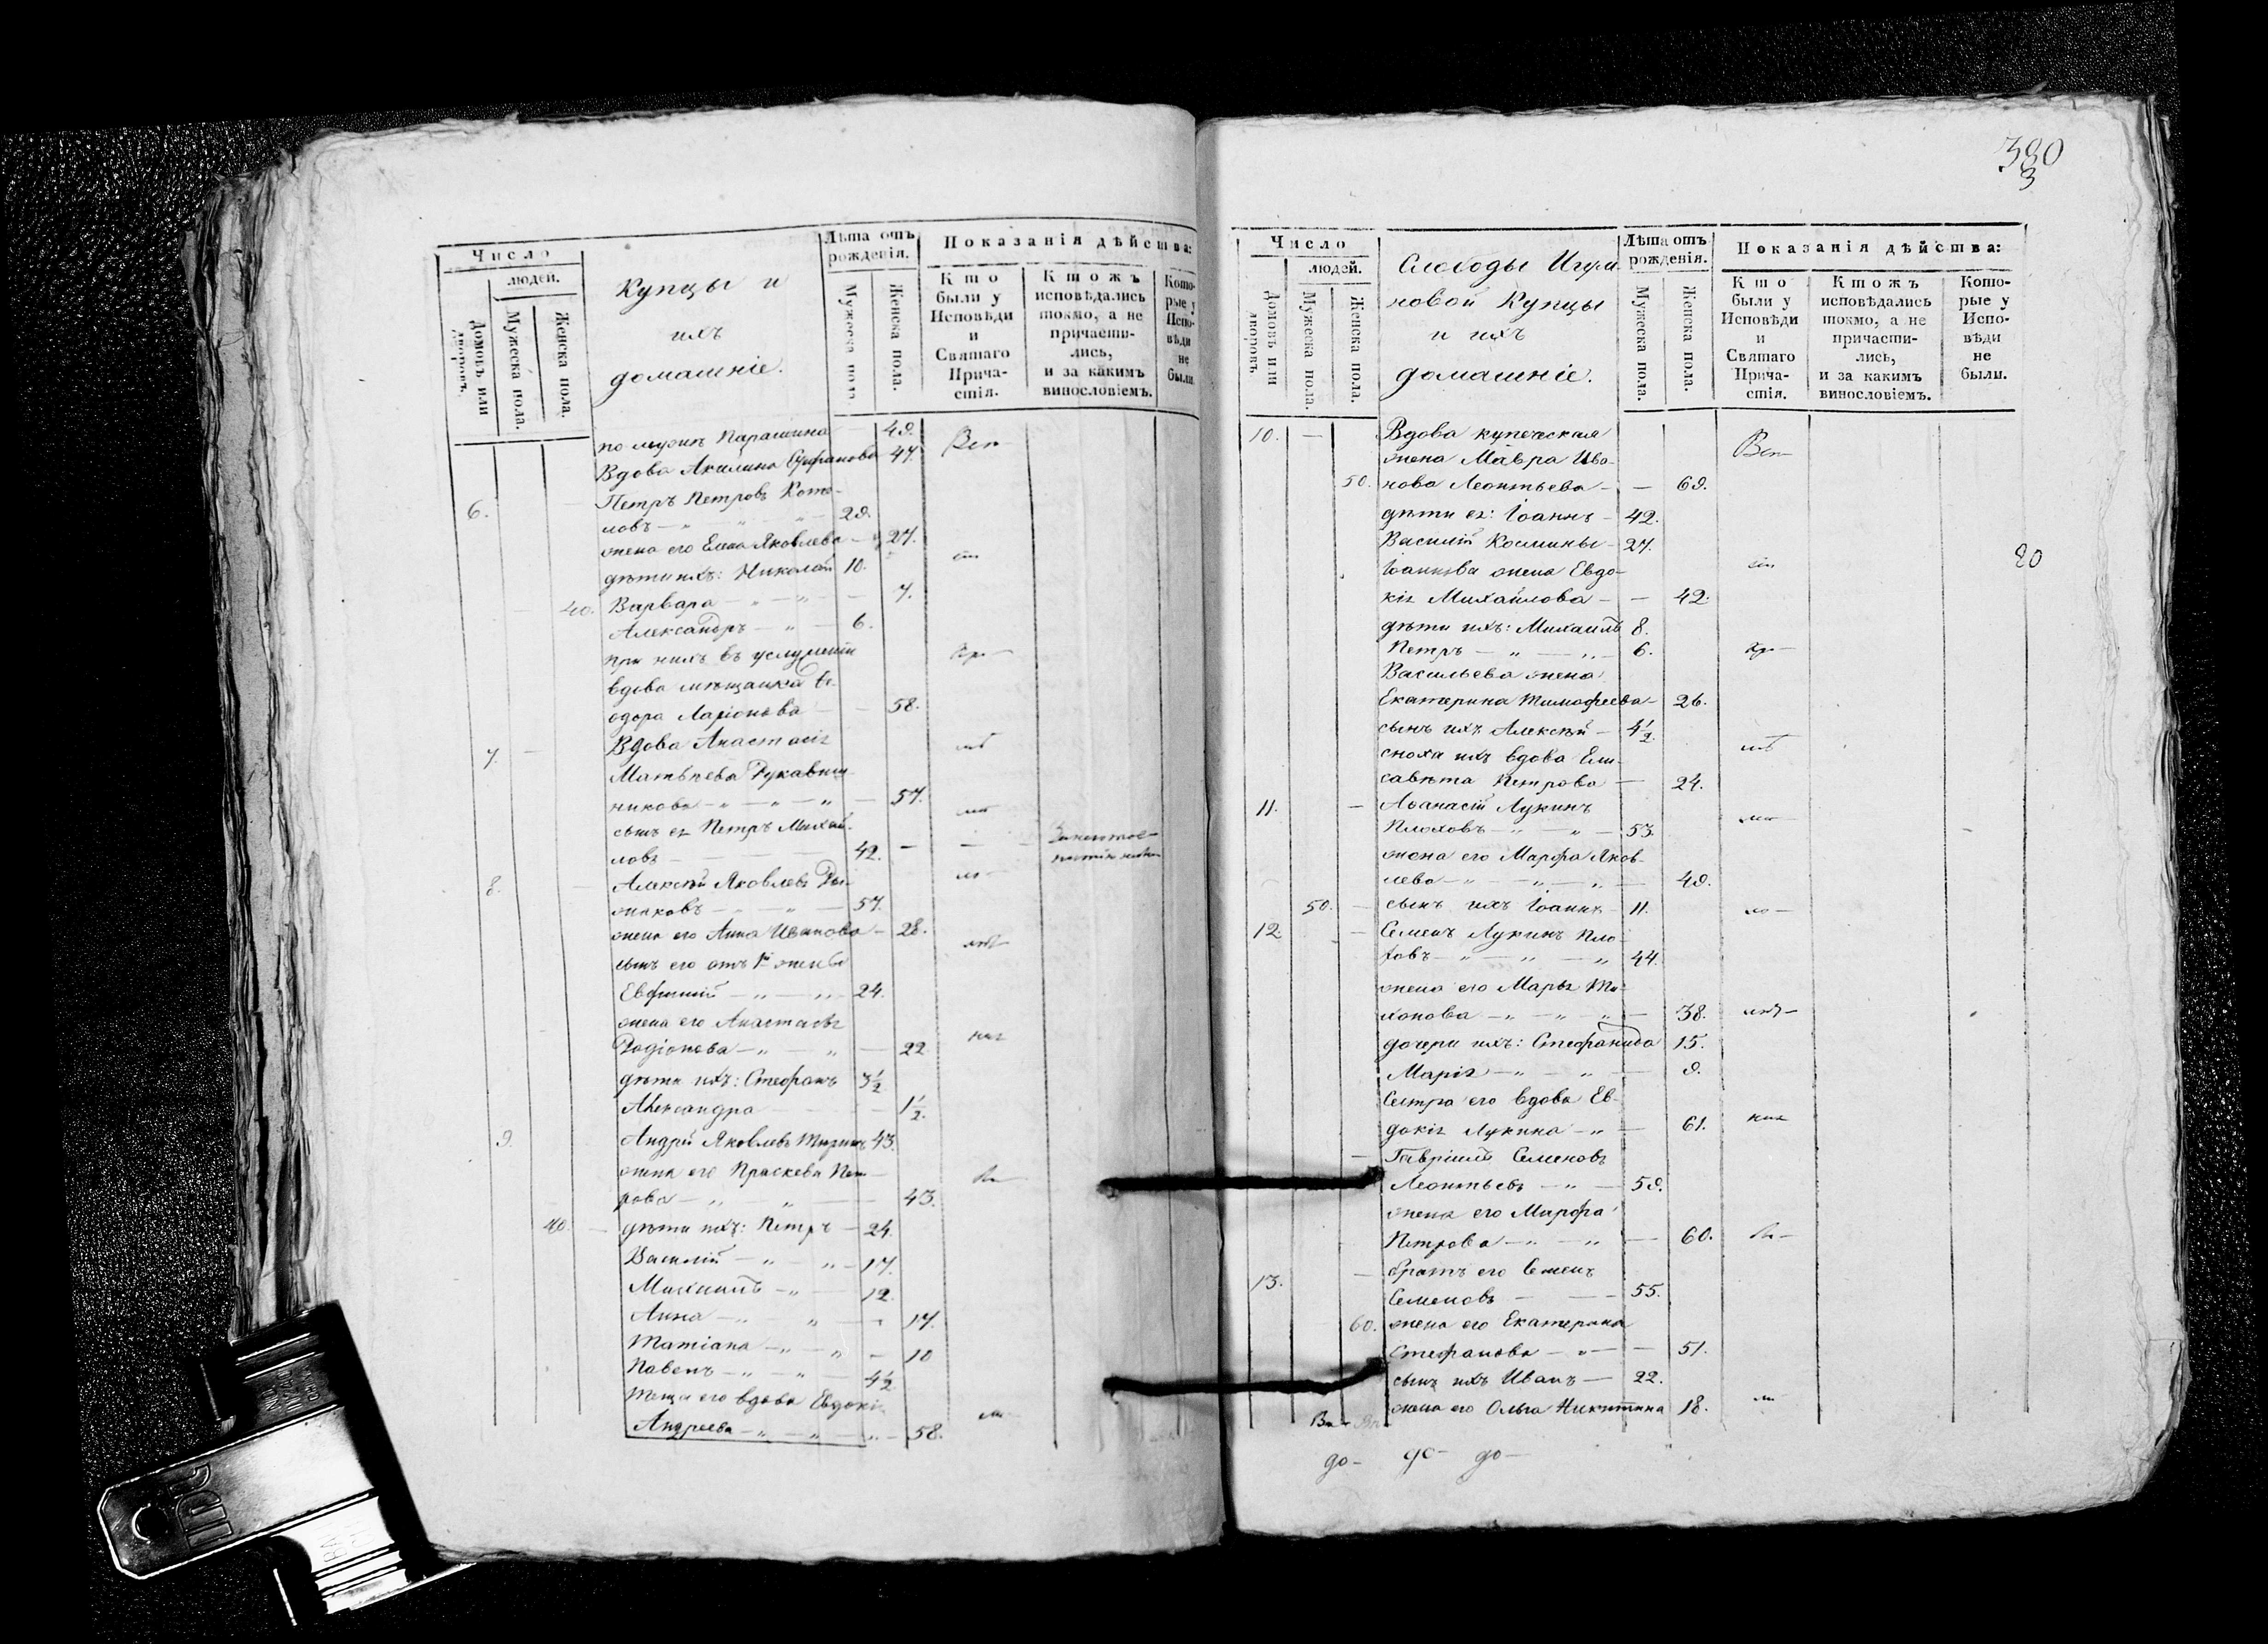 Число
людей.
Домовъ или дворовъ.
Мужеска пола.
Женска пола.
Купцы и
ихъ
домашніе.
Лѣта отъ рожденія.
Мужеска пола.
Женска пола.
Показанія дѣйства:
Кто были у Исповѣди и Святаго Прича- стія.
Ктожъ исповѣдались токмо, а не причасти- лись, и за какимъ винословіемъ.
Кото- рые у Испо- вѣди не были.
Парашина — 49.
Вдова Акилина Стефанова 47.
6. Петръ Петровъ Кото-
ловъ — „ — „ — 29.
жена его Елена Яковлева — 27.
дѣти ихъ: Николай 10.
40. Варвара — „ — „ — 7.
Александръ — „ — 6.
при нихъ въ услуженіи
вдова мѣщанка Ѳе-
одора Ларіонова — 58.
7. — Вдова Анастасія
Матвѣева Рукавиш-
никова — „ — „ — „ — 57.
сынъ ея Петръ Михай-
ловъ — 42. —
8. Алексѣй Яковлевъ Ры-
жаковъ — „ — „ — 57.
жена его Анна Иванова — 28.
сынъ его отъ 1й жены
Евфимій — „ — „ — 24.
жена его Анастасія
Родіонова — „ — „ — 22
дѣти ихъ: Стефанъ 3½
Александра — 1½.
9. Андрей Яковлевъ 43.
жена его Праскева Пет-
рова — „ — „ — 43.
40. дѣти ихъ: Петръ — 24.
Василій — „ — „ — 17.
Михаилъ — „ — 12.
Анна — „ — „ — 17.
Татіана — „ — „ — 10
Павелъ — „ — „ — 4½
Теща его вдова Евдокія
Андреева — „ — „ — „ — 58.
380
3
Число
людей.
Домовъ или дворовъ.
Мужеска пола.
Женска пола.
Слободы Игум-
новой Купцы
и ихъ
домашніе.
Лѣта отъ рожденія.
Мужеска пола.
Женска пола.
Показанія дѣйства:
Кто были у Исповѣди и Святаго Прича- стія.
Ктожъ исповѣдались токмо, а не причасти- лись, и за какимъ винословіемъ.
Кото- рые у Испо- вѣди не были.
10. — Вдова купеческая
жена Мавра Ива-
50. нова Леонтьева — — 69.
дѣти ея: Іоаннъ — 42.
Василій Космины — 27.
Іоаннова жена Евдо-
20
кія Михайлова — — 42.
дѣти ихъ: Михаилъ 8.
Петръ — „ — „ — 6.
Васильева жена
Екатерина Тимофеева — 26.
сынъ ихъ Алексѣй — 4½.
сноха ихъ вдова Ели-
савѣта Петрова — 24.
11. — Аѳанасій Лукинъ
Плоховъ — „ — „ — 53.
жена его Марфа Яков-
лева — „ — „ — „ — 49.
50. — сынъ ихъ Іоаннъ — 11.
12 — Семенъ Лукинъ Пло-
ховъ — „ — „ — „ 44.
жена его Марья Ти-
хонова — „ — „ — „ — 38.
дочери ихъ: Стефанида 15.
Марія — „ — „ — 9.
Сестра его вдова Ев-
докія Лукина — „ — 61.
— Гавріилъ Семеновъ
Леонтьевъ — „ — 59.
жена его Марфа
Петрова — „ — „ — 60.
13. — братъ его Семенъ
Семеновъ — — 55.
60. жена его Екатерина
Стефанова — „ — — 51.
сынъ ихъ Иванъ — 22.
жена его Ольга Никитина 18.
до — до — до —